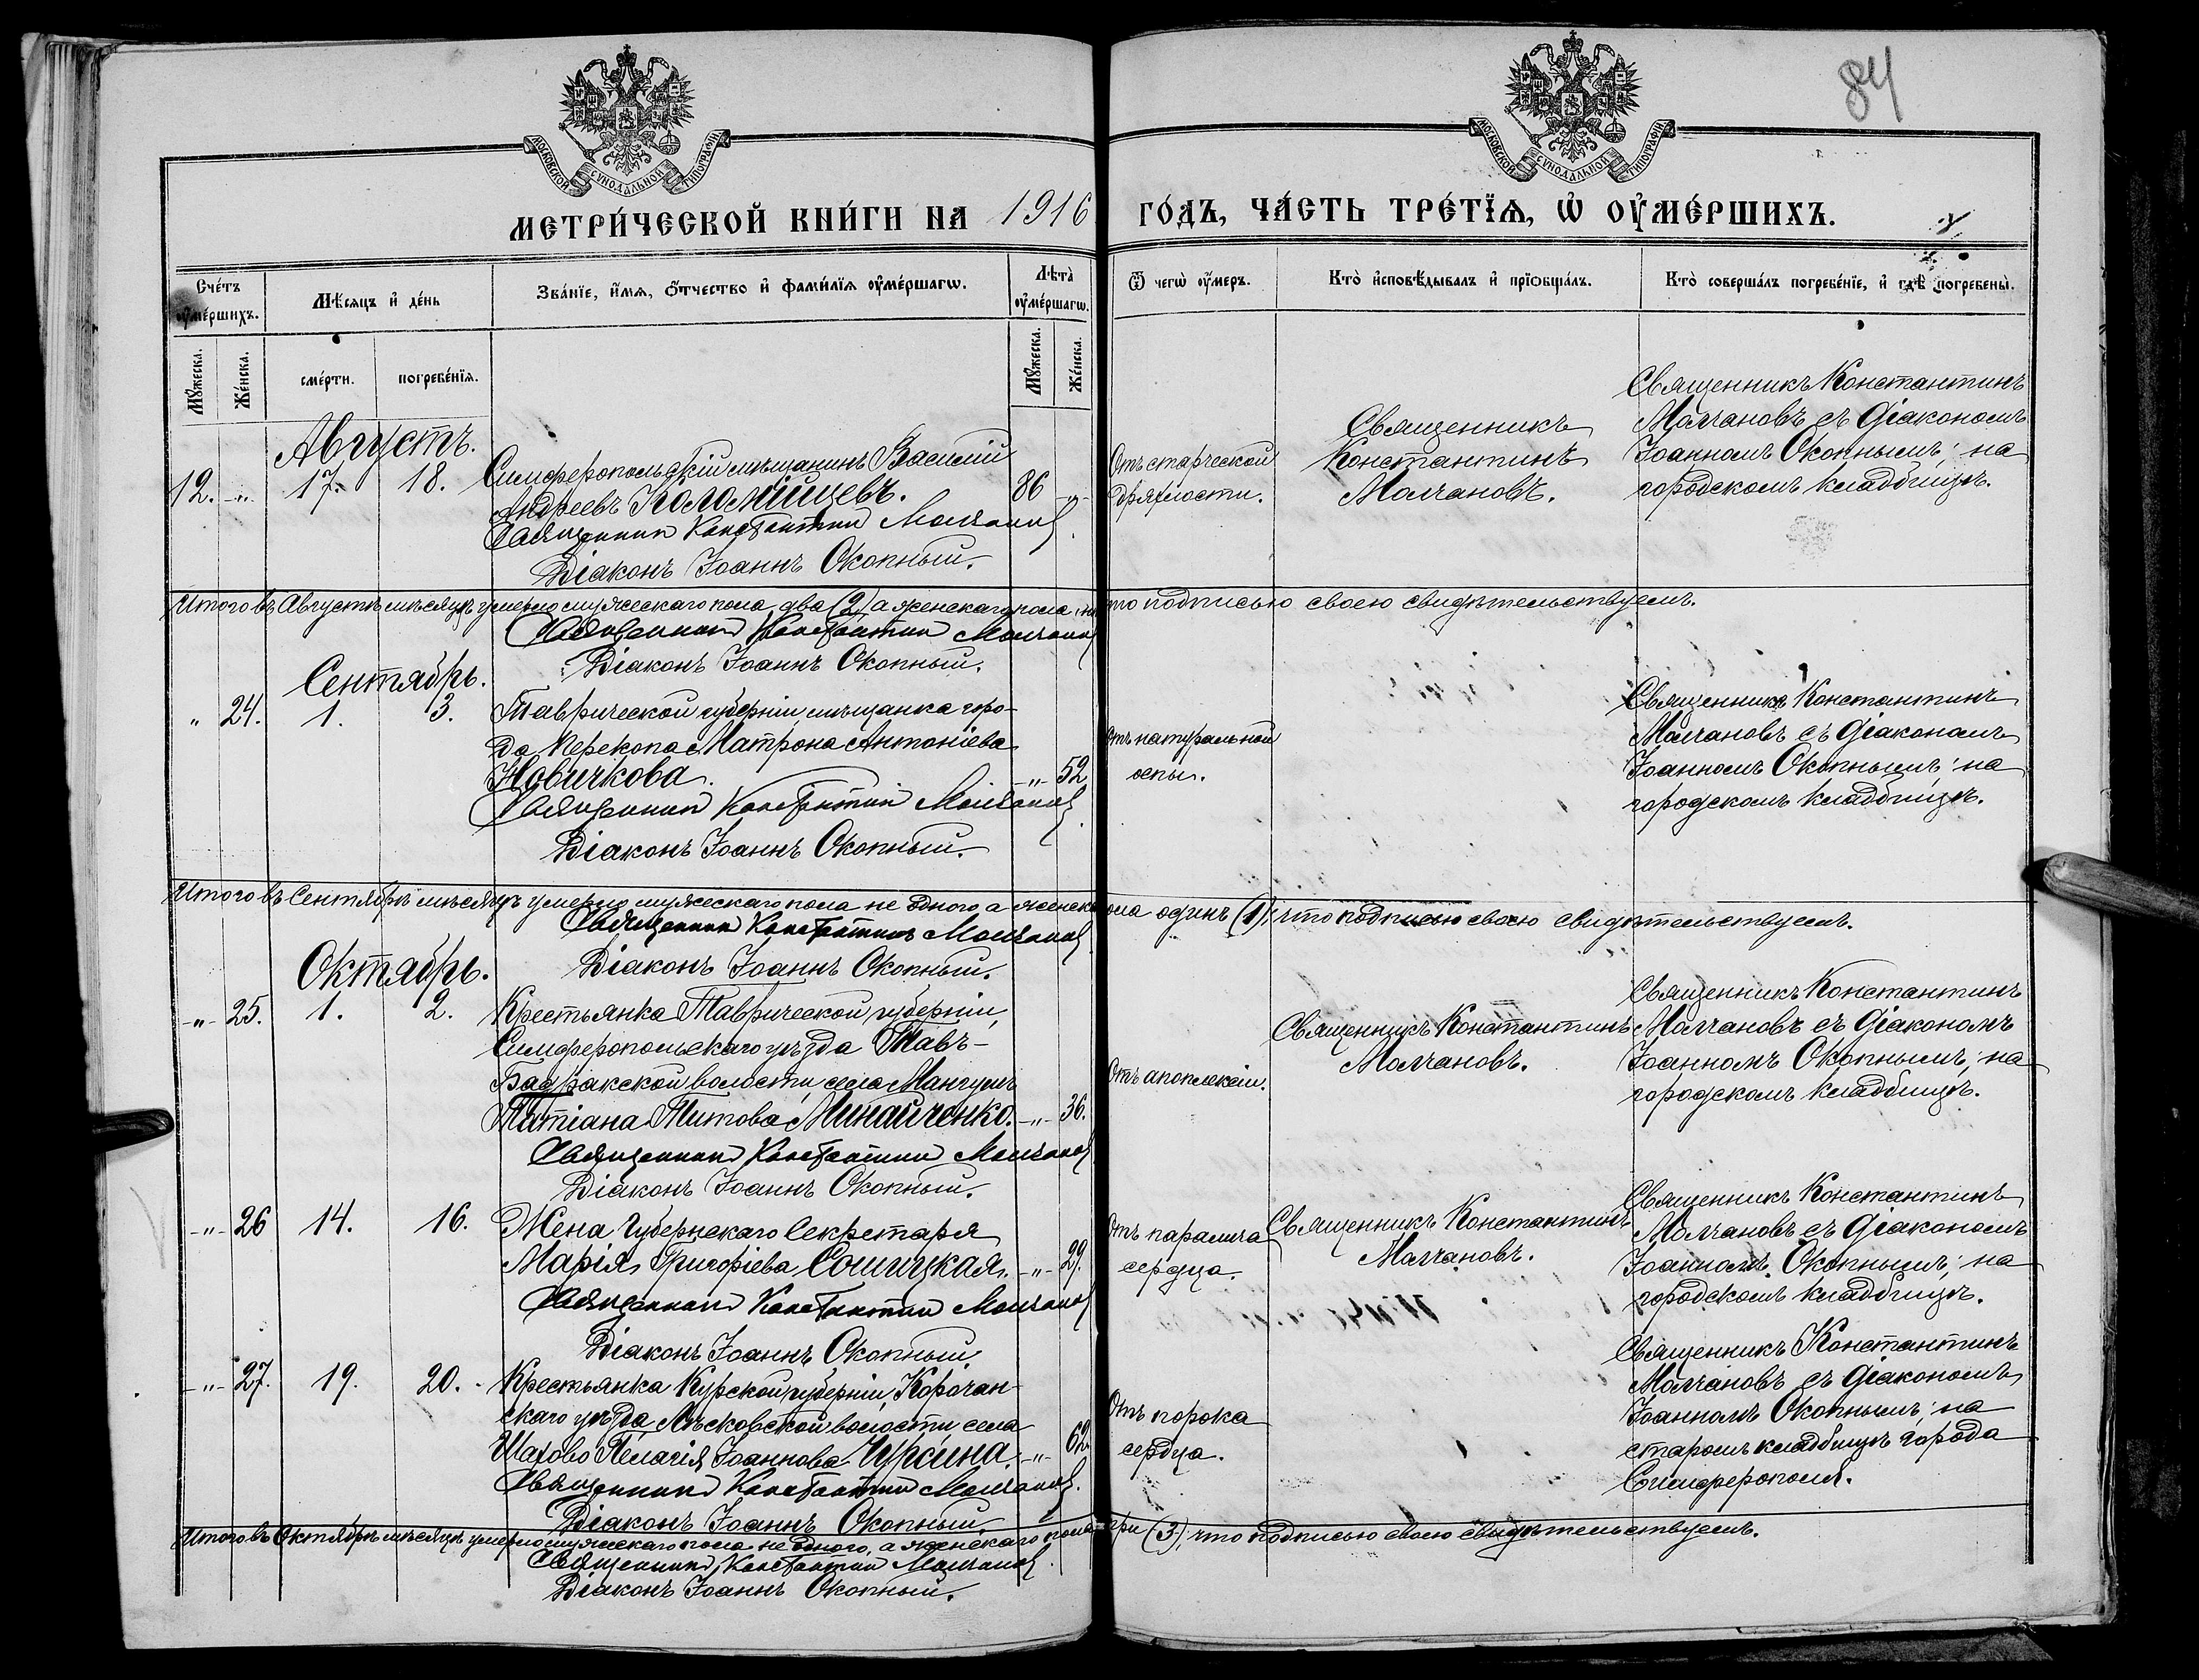 84
МОСКОВСКОЙ СѴНОДАЛЬНОЙ ТИПОГРАФІИ
МОСКОВСКОЙ СѴНОДАЛЬНОЙ ТИПОГРАФІИ
МЕТРИ́ЧЕСКОЙ КНИ́ГИ НА 1916 ГО́ДЪ, ЧА́СТЬ ТРЕ́ТЇѦ, Ѡ҆ ОУ҆МЕ́РШИХЪ.
Сче́тъ оу҆ме́ршихъ.
Мꙋ́жеска.
Же́нска.
Мѣ́сѧцъ и҆ де́нь
сме́рти.
погребе́нїѧ.
Зва́нїе, и҆́мѧ, ѻ҆́тчество и҆ фами́лїѧ оу҆ме́ршагѡ.
Лѣта̀ оу҆ме́ршагѡ.
Мꙋ́жеска.
Же́нска.
Ѿ чегѡ̀ оу҆́меръ.
Кто̀ и҆сповѣ́дывалъ и҆ прїѡбща́лъ.
Кто̀ соверша́лъ погребе́нїе, и҆ гдѣ̀ погребены̀.
Августъ.
12. -„- 17. 18.
Симферопольскій мѣщанинъ Василій
Андреевъ Коломійцевъ. 86 -„-
Священникъ Константинъ Молчановъ
Діаконъ Іоаннъ Окопный.
Отъ старческой
дряхлости.
Священникъ
Константинъ
Молчановъ.
Священникъ Константинъ
Молчановъ съ діакономъ
Іоанномъ Окопнымъ; на
городскомъ кладбищѣ.
Итого въ Августѣ мѣсяцѣ умерло мужескаго пола два (2), а женскаго пола что подписью своею свидѣтельствуемъ.
Священникъ Константинъ Молчановъ
Діаконъ Іоаннъ Окопный.
Сентябрь.
„ 24. 1. 3.
Таврической губерніи мѣщанка горо-
да Перекопа Матрона Антоніева
Новичкова. -„- 52
Священникъ Константинъ Молчановъ
Діаконъ Іоаннъ Окопный.
Отъ натуральной
оспы.
Священникъ Константинъ
Молчановъ съ діакономъ
Іоанномъ Окопнымъ; на
городскомъ кладбищѣ.
Итого въ Сентябрѣ мѣсяцѣ умерло мужескаго пола не одного, а женска пола одинъ (1), что подписью своею свидѣтельствуемъ.
Священникъ Константинъ Молчановъ
Діаконъ Іоаннъ Окопный.
Октябрь.
-„- 25. 1. 2.
Крестьянка Таврической губерніи,
Симферопольскаго уѣзда Тавъ-
Бадракской волости, села Мангушъ
Татіана Титова Минайченко. -„- 36.
Священникъ Константинъ Молчановъ
Діаконъ Іоаннъ Окопный.
Отъ апоплексіи.
Священникъ Константинъ
Молчановъ.
Священникъ Константинъ
Молчановъ съ діакономъ
Іоанномъ Окопнымъ; на
городскомъ кладбищѣ.
-„- 26 14. 16.
Жена Губернскаго Секретаря
Марія Григоріева Сошицкая. -„- 29.
Священникъ Константинъ Молчановъ
Діаконъ Іоаннъ Окопный
Отъ паралича
сердца.
Священникъ Константинъ
Молчановъ.
Священникъ Константинъ
Молчановъ съ діакономъ
Іоанномъ Окопнымъ; на
городскомъ кладбищѣ.
-„- 27. 19. 20.
Крестьянка Курской губерніи, Корочан-
скаго уѣзда, Лѣсковской волости села
Шахово Пелагія Іоаннова Чурсина. -„- 62
Священникъ Константинъ Молчановъ.
Діаконъ Іоаннъ Окопный
Отъ порока
сердца.
Священникъ Константинъ
Молчановъ съ діакономъ
Іоанномъ Окопнымъ; на
старомъ кладбищѣ города
Симферополя.
Итого въ Октябрѣ мѣсяцѣ умерло мужескаго пола не одного, а женскаго пола три (3), что подписью своею свидѣтельствуемъ.
Священникъ Константинъ Молчановъ.
Діаконъ Іоаннъ Окопный.